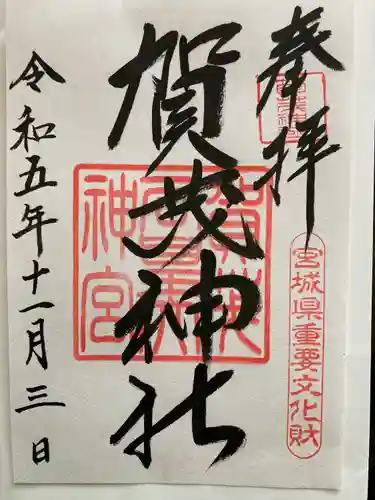 奉拝
宮城県重要文化財
賀茂神社
令和五年十一月三日